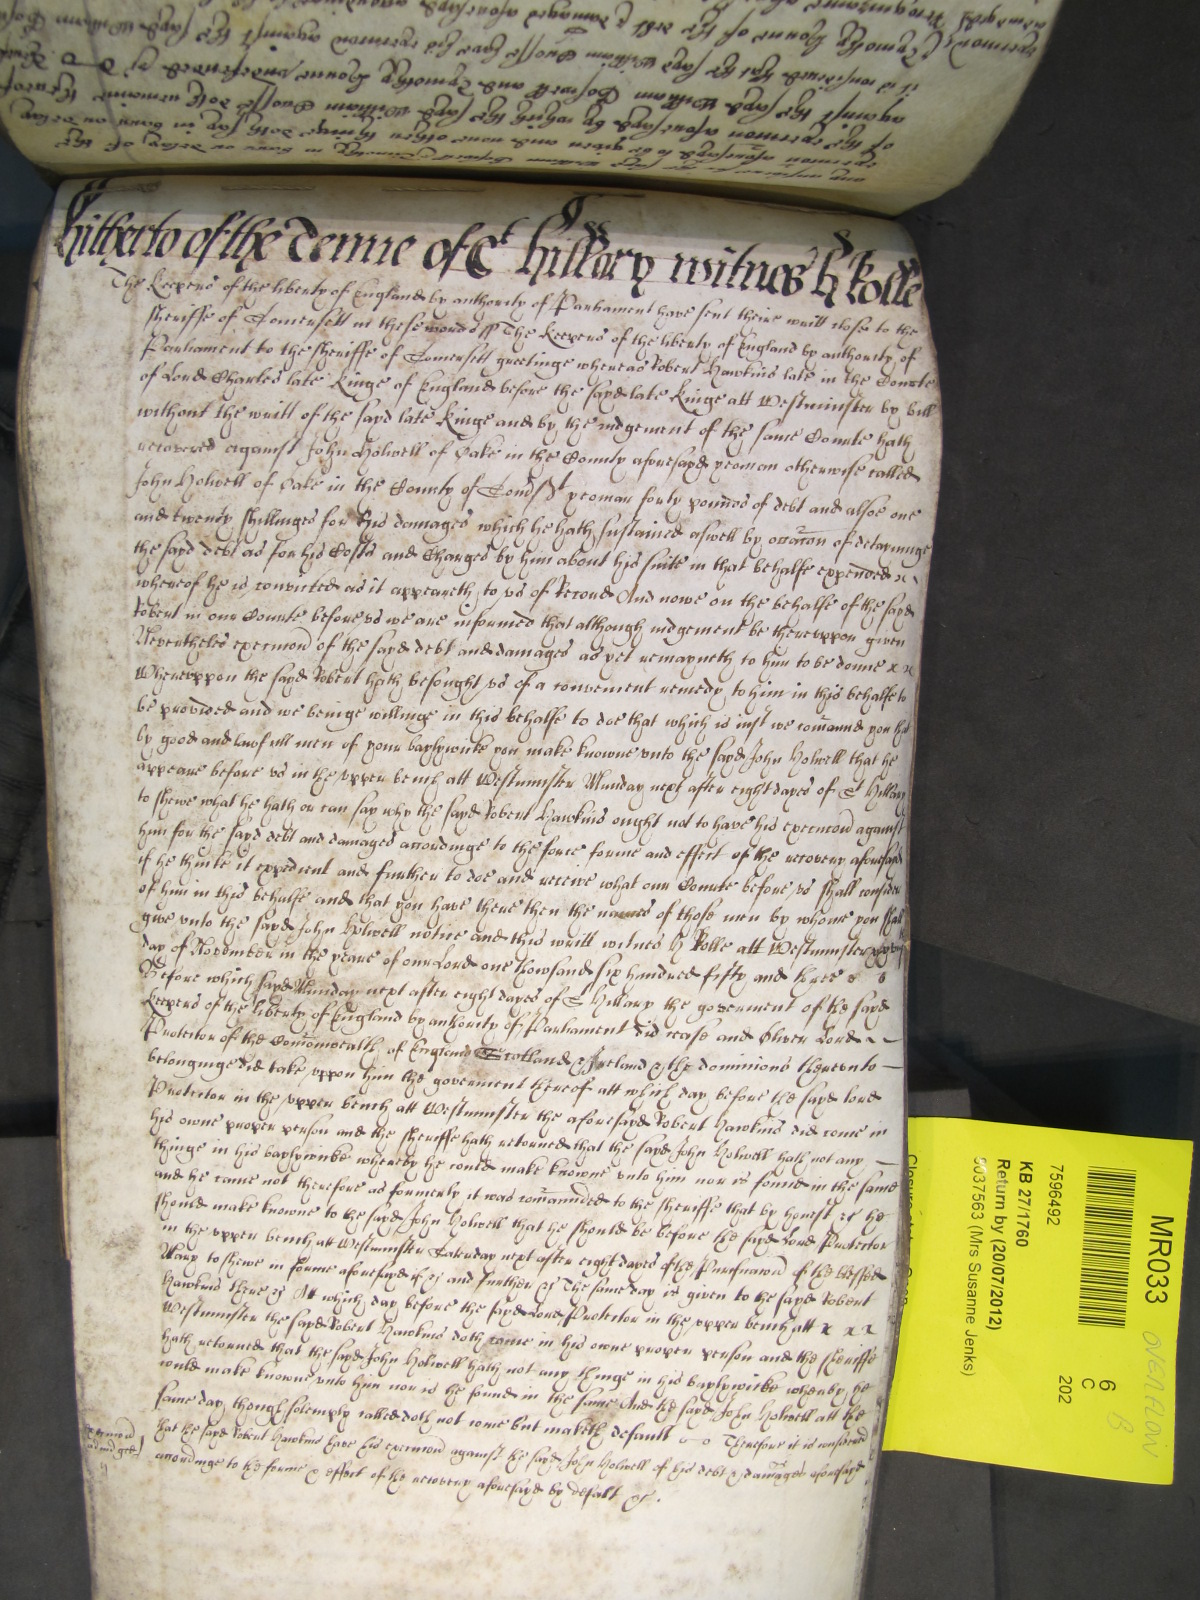 hitherto of the terme of St hillary witnes H Rolle
The Keepers of the liberty of England by authority of Parliament have sent theire writt close to the
sheriffe of Somersett in these words ss The Keepers of the liberty of England by authority of
Parliament to the sheriffe of Somersett greetinge whereas Robert Hawkins late in the Courte
of Lord Charles late Kinge of England before the sayd late Kinge att Westminster by bill
without the writt of the sayd late Kinge and by the iudgement of the same Courte hath
recovered against John Holwell of Oake in the County aforesayd yeoman otherwise called
John Holwell of Oake in the County of yeoman forty pounds of debt and alsoe one
and twenty shillinges for his damages which he hath sustained aswell by occacon of detayninge
the sayd debt as for his Costs and Charges by him about his suite in that behalfe expended
whereof he is convicted as it appeareth to vs of Record And nowe on the behalfe of the sayd
Robert in our Courte before vs we are informed that although iudgement be therevppon given
Neverthelesse execucion of the sayd debt and damages as yet remayneth to him to be donne x x
Wherevppon the sayd Robert hath besought vs of a convenient remedy to him in this behalfe to
be provided and we beinge willinge in this behalfe to doe that which is iust we comand you that
by good and lawfull men of your baylywicke you make knowne vnto the sayd John Holwell that he
appeare before vs in the vpper bench att Westminster Munday next after eight dayes of St Hillary
to shewe what he hath or can say why the sayd Robert Hawkins ought not to have his execucion against
him for the sayd debt and damages accordinge to the force forme and effect of the recovery aforesayd
if he thinke it expedient and further to doe and receive what our Courte before vs shall consider
of him in this behalfe and that you have there then the names of those men by whome you shall
give vnto the sayd John Holwell notice and this writt witnes H Rolle att Westminster
day of November in the yeare of our Lord one thowsand six hundred fifty and three
Before which sayd Munday next after eight dayes of St Hillary the goverment of the sayd
Keepers of the liberty of England by authority of Parliament did cease and Oliver Lord
Protector of the Comonwealth of England Scotland & Ireland & the dominions therevnto
belonginge did take vppon him the goverment thereof att which day before the sayd lord
Protector in the vpper bench att Westminster the aforesayd Robert Hawkins did come in
his owne proper person and the sheriffe hath returned that the sayd John Holwell hath not any
thinge in his baylywicke whereby he could make knowne vnto him nor is found in the same
and he came not therefore as formerly it was comaunded to the sheriffe that by honest &c he
should make knowne to the sayd John Holwell that he should be before the sayd Lord Protector
in the vpper bench att Westminster Saturday next after eight dayes of the Purificacon of the blessed
Mary to shewe in forme aforesayd if &c and further &c The same day is given to the sayd Robert
Hawkins there &c Att which day before the sayd Lord Protector in the vpper bench att x x x
Westminster the sayd Robert Hawkins doth come in his owne proper person and the sheriffe
hath returned that the sayd John Holwell hath not any thinge in his baylywicke whereby he
could make knowne vnto him nor is he found in the same And the sayd John Holwell att the
same day though solemply called doth not come but maketh default Therefore it is considered
that the sayd Robert Hawkins have his execucion against the sayd John Holwell of his debt & damages aforesayd
accordinge to the forme & effect of the recovery aforesayd by default &c.
MR033
OVERFLOW
6
C
202
7596492
KB 27/1760
Return by (20/07/2012)
5037563 (Mrs Susanne Jenks)